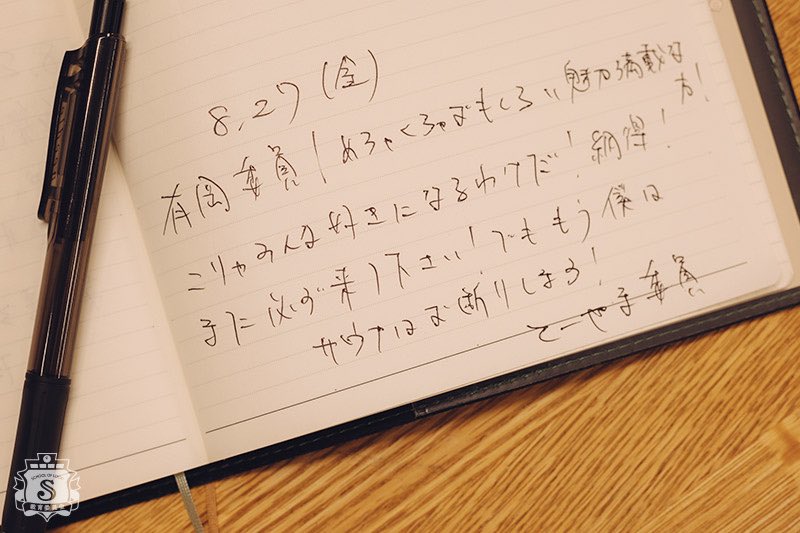 8.27(金)
有岡委員!めちゃくちゃおもしろい魅力満載な方!
こりゃみんな好きになるわけだ!納得!
また必ず来て下さい!でももう僕は
サウナはお断りします!
とーやま委員
SCHOOL OF LOCK
S
教育委員会